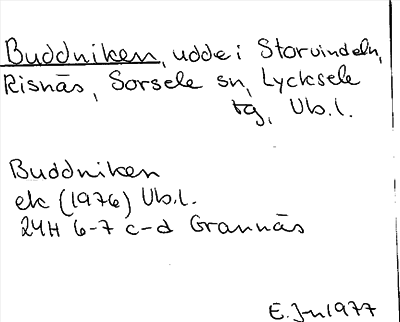 Buddniken, udde i Storvindeln,
Risnäs, Sorsele sn, Lycksele
tg, Vb.l.
Buddniken
ek (1976) Vb.l.
24H 6-7 c-d Grannäs
E. Jn 1977